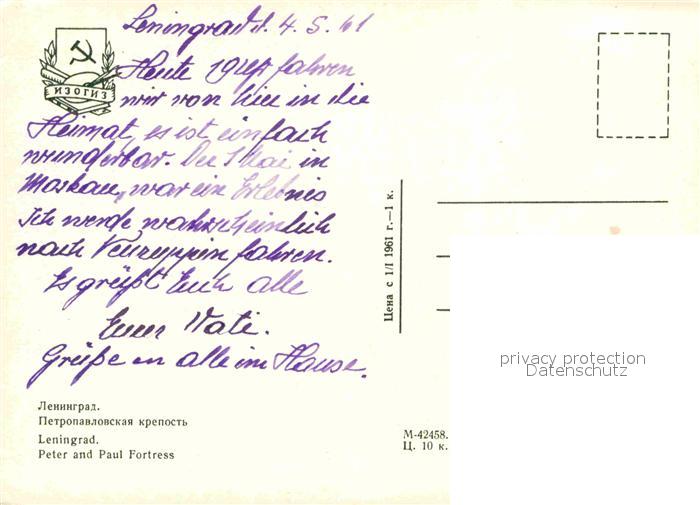 Leningrad d. 4. 5. 61
ИЗОГИЗ
Heute 19 Uhr fahren
wir von hier in die
Heimat, es ist einfach
wunderbar. Der 1 Mai in
Moskau, war ein Erlebnis
Ich werde wahrscheinlich
nach Neuruppin fahren.
Es grüßt Euch alle
Euer Vati.
Grüße an alle im Hause.
Ленинград.
Петропавловская крепость
Leningrad.
Peter and Paul Fortress
Цена с 1/I 1961 г.—1 к.
М-42458.
Ц. 10 к.
privacy protection
Datenschutz